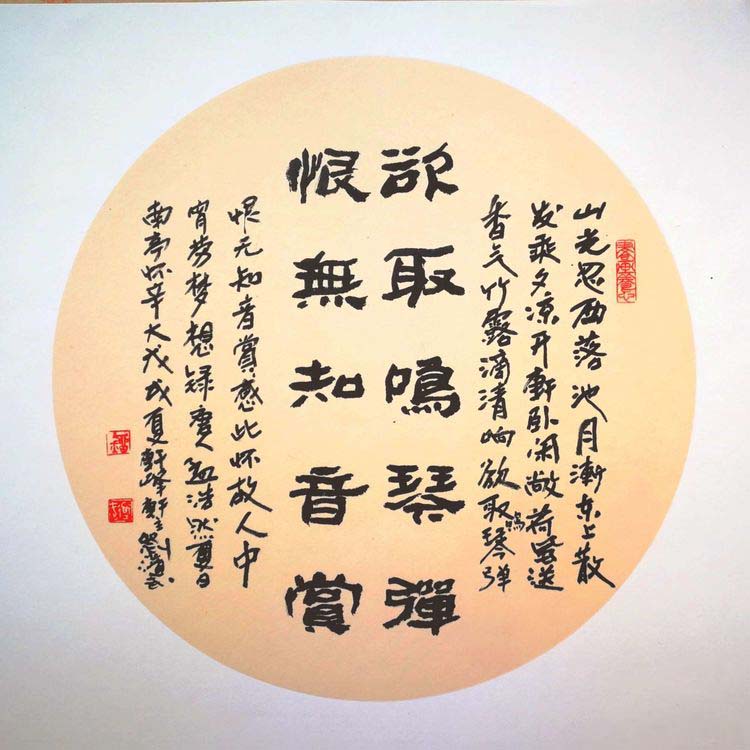 山光忽西落池月漸东上散
发乘夕凉开軒卧闲敞荷風送
香气竹露滴清响欲取鸣琴弹
欲取鳴琴彈
恨無知音賞
恨无知音賞感此怀故人中
宵劳梦想録唐人孟浩然夏日
南亭怀辛大戊戌夏